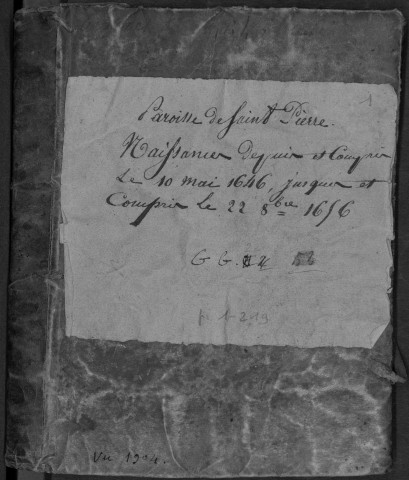 1
Paroisse de Saint Pierre.
Naissances Depuis et Compris
Le 10 mai 1646, jusques et
Compris le 22 8bre 1656
G G. 4
p. 1-219
Vu 1904.